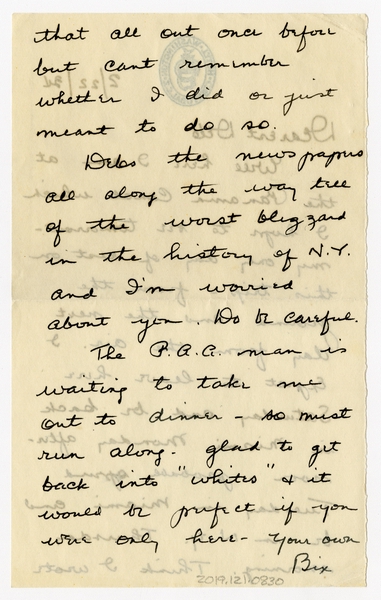 that all out once before
but cant remember
whether I did or just
meant to do so.
Debs the newspapers
all along the way tell
of the worst blizzard
in the history of N.Y.
and I'm worried
about you. Do be careful.
The P.A.A. man is
waiting to take me
out to dinner - so must
run along - glad to get
back into "whites" & it
would be perfect if you
were only here - Your own
Bix
2019.121.0830